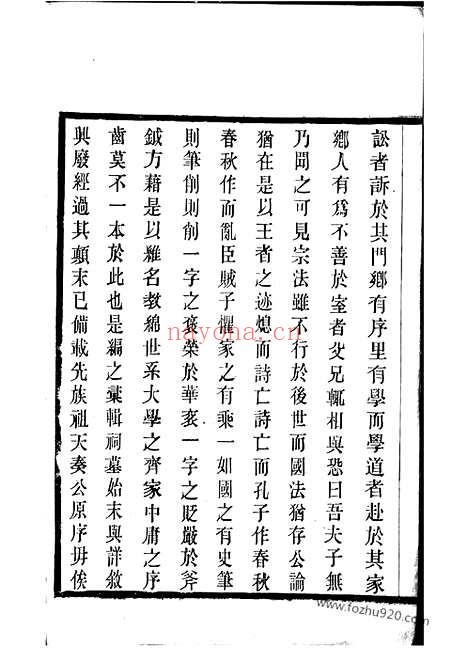 訟者訴於其門鄉有序里有學而學道者赴於其家
鄉人有爲不善於室者父兄輒相與恐曰吾夫子無
乃聞之可見宗法雖不行於後世而國法猶存公論
猶在是以王者之迹熄而詩亡詩亡而孔子作春秋
春秋作而亂臣賊子懼家之有乘一如國之有史筆
則筆削則削一字之褒榮於華衮一字之貶嚴於斧
鉞方藉是以維名教綿世系大學之齊家中庸之序
齒莫不一本於此也是編之彙輯祠墓始末與詳敘
興廢經過其顛末已備載先族祖天奏公原序毋俟
nayona.cn
www.fozhu920.com